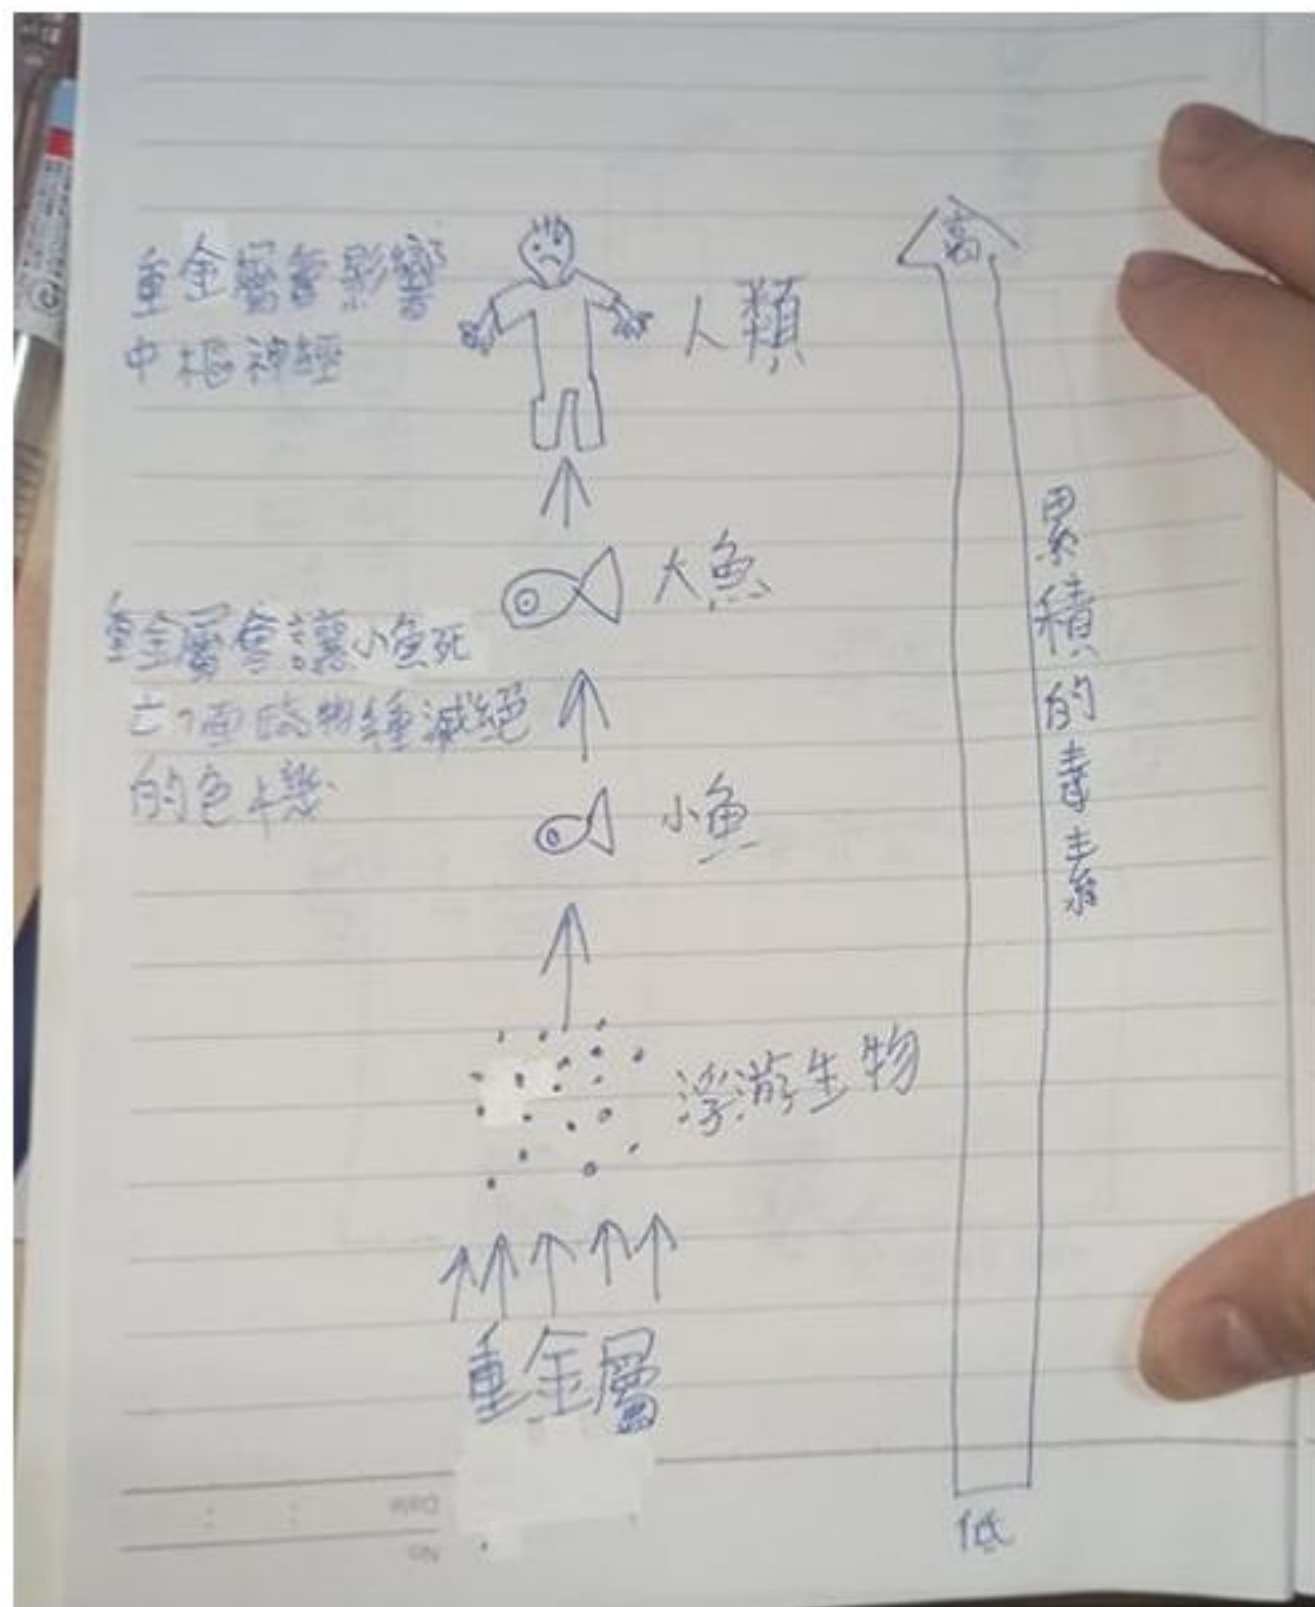 重金屬會影響
中樞神經
人類
高
大魚
重金屬會讓小魚死
亡面臨物種滅絕
的危機
小魚
累積的毒素
浮游生物
重金屬
Date
No
低